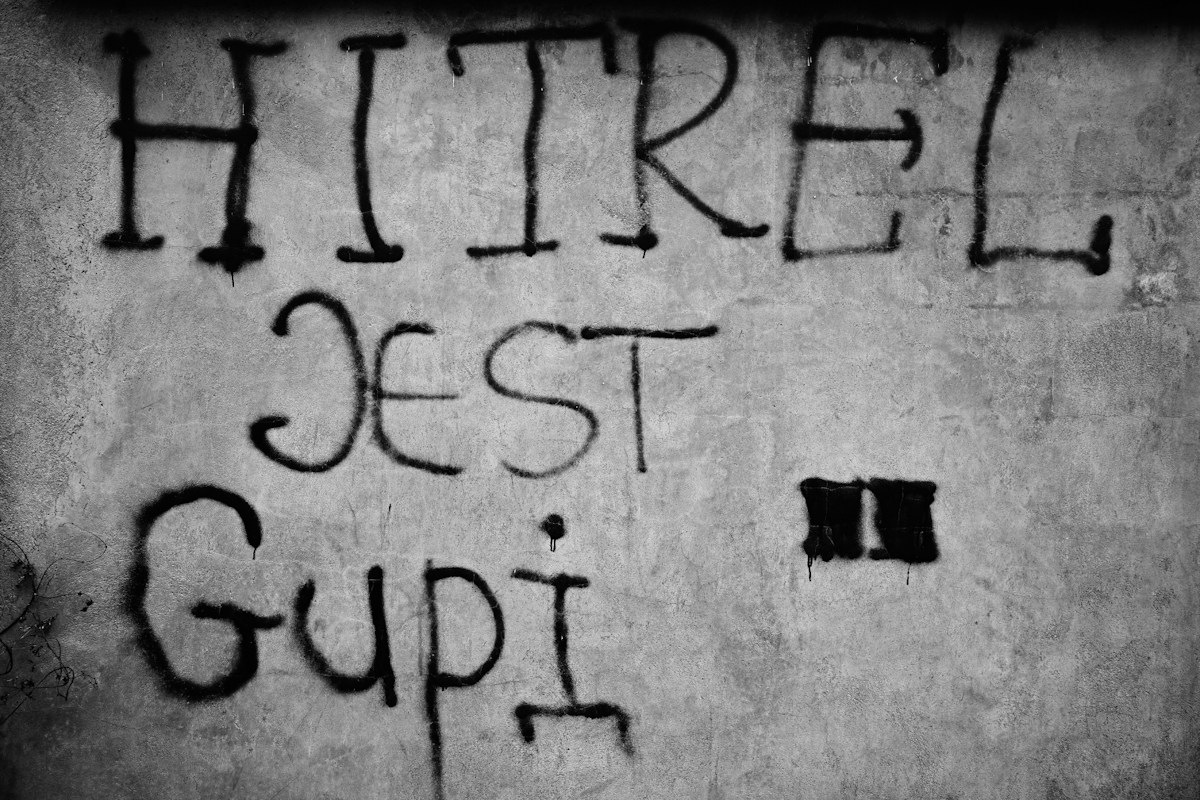 HITREL
JEST
GupI